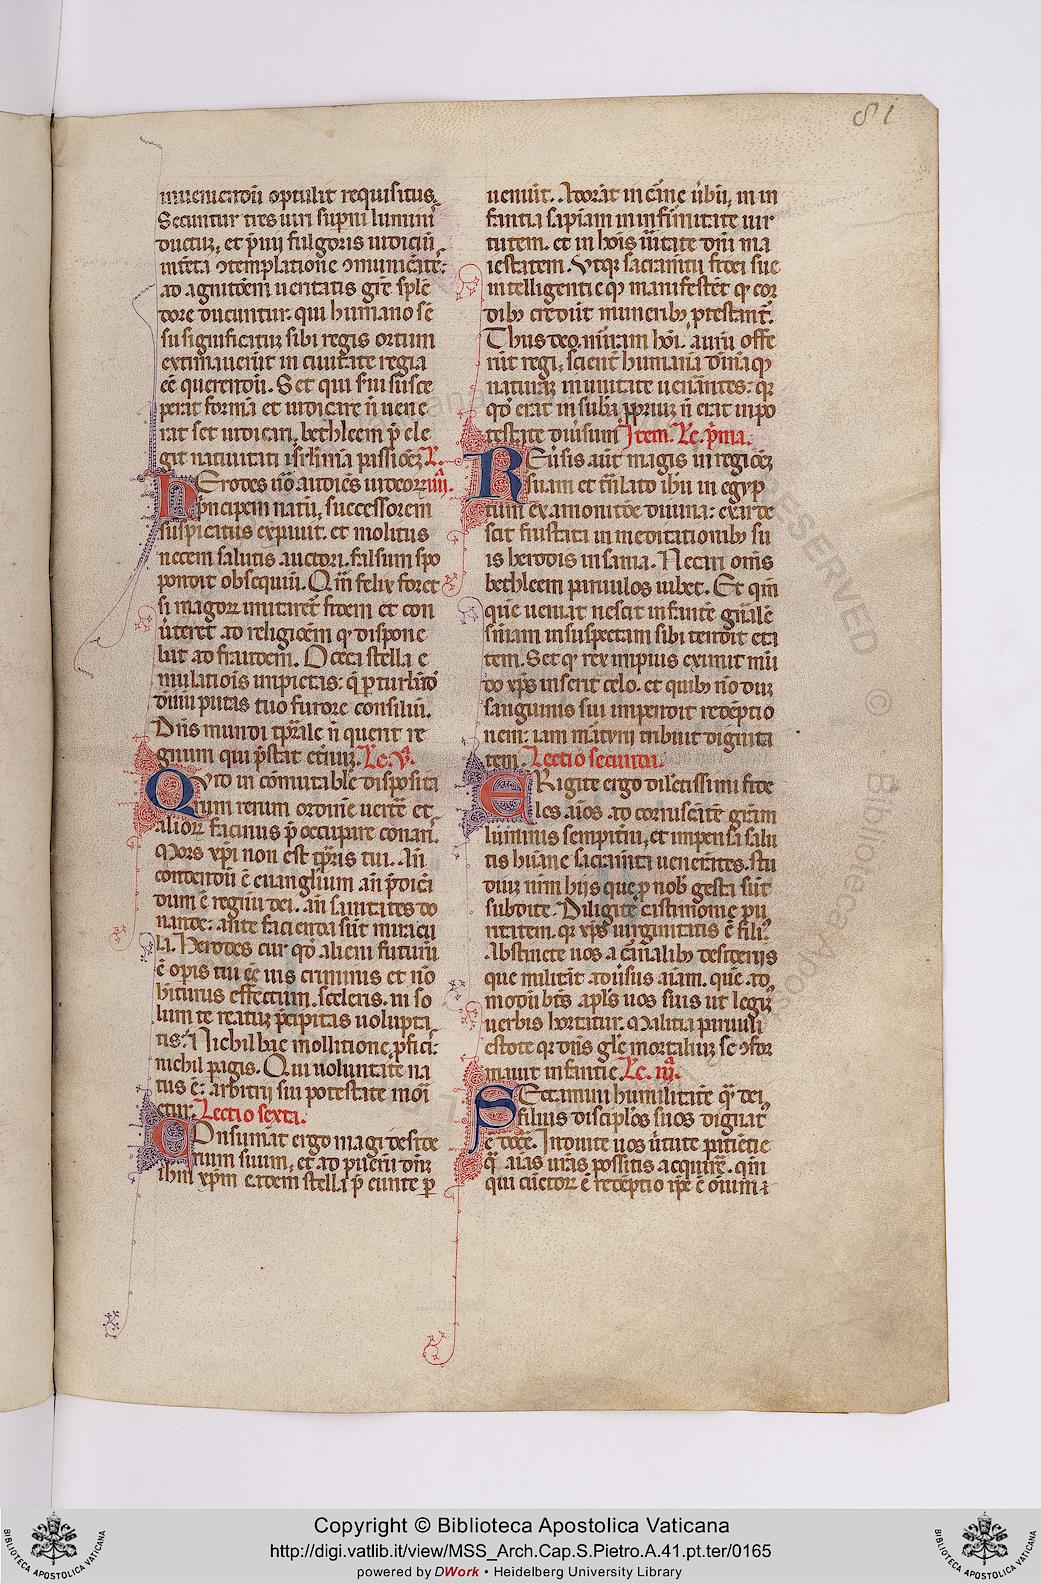 81
inueniendū optulit requisitus.
Secuntur tres uiri supni luminis
ductū, et p̄uij fulgoris indiciū
intēta ↄtemplatione ↄmunicātes:
ad agnitōem ueritatis grē splē
dore ducuntur. qui humano sē
su significatū sibi regis ortum
extimauerūt in ciuitate regia
eē querendū. Set qui serui susce
perat formā et iudicare nō uene
rat set iudicari. bethleem p̄ ele
git natiuitati ierl'imā passioēꝫ Lc.
Erodes uō audiēs iudeoꝝ iiij.
pͥncipem natū, successorem
suspicatus expauit. et molitus
necem salutis auctori. falsum spo
pondit obsequiū. Qm̄ felix foret
si magoꝝ imitaret' fidem et con
uerteret ad religioēm qd' dispone
bat ad fraudem. O ceca stulta e
mulatiois impietas: q̄ ꝑturbādū
diuinū putas tuo furore consiliū.
Dn̄s mundi tp̄rale nō querit re
gnum qui p̄stat eternū. Lc. v.
Qvid in cōmutabilē disposita
rum rerum ordinē uertē et
alioꝝ facinus p̄ occupare conaris.
Mors xp̄i non est tp̄ris tui. An̄
condendū ē euangliūm an̄ p̄dicā
dum ē regnū dei. an̄ sanitates do
nande: ante facienda sūt miracu
la. Herodes cur qd' alieni futurū
ē opis tui eē uis criminis et nō
habiturus effectum sceleris. in so
lum te reatū p̄cipitas uolunta
tis? Nichil hac mollitione proficis:
nichil pagis. Qui uoluntate na
tus ē: arbitrij sui potestate mori
etur. Lectio sexta.
Consumāt ergo magi deside
rium suum, et ad puerū dn̄m
ih̄m xp̄m eadem stella p̄ eunte ꝑ
ueniūt. Adorāt in carne uerbū, in in
fantia sapiam in infirmitate uir
tutem. et in hois ueritate dn̄i ma
iestatem. Vtqꝫ sacramentū fidei sue
intelligentie qꝫ manifestēt qd' cor
dibꝫ credūt muneribꝫ ꝓtestant'.
Thus deo. mirram hoi. aurū offe
rūt regi, scient' humanā diuinā qꝫ
naturam in unitate uenerantes: qꝛ
qd' erat in subā ꝓpriū nō erat in po
testate diuisum Item. Lc. pͥma.
Reuersis aut magis in regioēꝫ
suam et translato ih̄u in egyp
tum ex amonitōe diuina: exarde
scit frustrati in meditationibꝫ su
is herodis insania. Necari om̄s
bethleem paruulos iubet. Et qm̄
quē ueniat nescit infantē gn̄alē
suam in suspectam sibi tendit eta
tem. Set qd' rex impius eximit mū
do xp̄s inserit celo. et quibꝫ nōdū
sanguinis sui impendit redēptio
nem: iam martyrij tribuit dignita
tem. Lectio secunda.
Erigite ergo dilectissimi fide
les aīos ad coruscātē grām
luminis sempitni, et impensa salu
tis humane sacramta uenerātes. stu
dium urm̄ hijs que ꝑ nob' gesta sūt
subdite. Diligite castimonie pu
ritatem. qꝛ xp̄s uirginitatis ē fili'.
Abstinete uos a carnalibꝫ desiderijs
que militāt aduersus aīam. quē ad
modū btūs apl's uos suis ut legim'
uerbis hortatur. Malitia paruuli
estote qꝛ dn̄s glē mortaliū se ↄfor
mauit infantie. Lc. iij.
Sectamini humilitatē qā dei
filius discipl'os suos dignat'
ē docē. Induite uos uirtute patiētie
qā aīas uras possitis acquirere. qm̄
qui cūctoꝝ ē redēptio ipe ē oīum
RESERVED
© Biblioteca Apos
Copyright © Biblioteca Apostolica Vaticana
http://digi.vatlib.it/view/MSS_Arch.Cap.S.Pietro.A.41.pt.ter/0165
powered by DWork • Heidelberg University Library
BIBLIOTECA APOSTOLICA VATICANA
BIBLIOTECA APOSTOLICA VATICANA